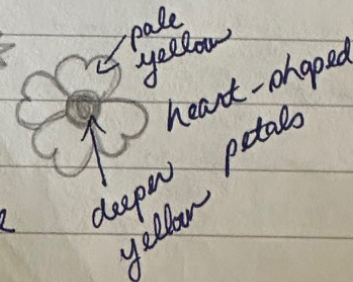 pale
yellow
heart-shaped
petals
deeper
yellow